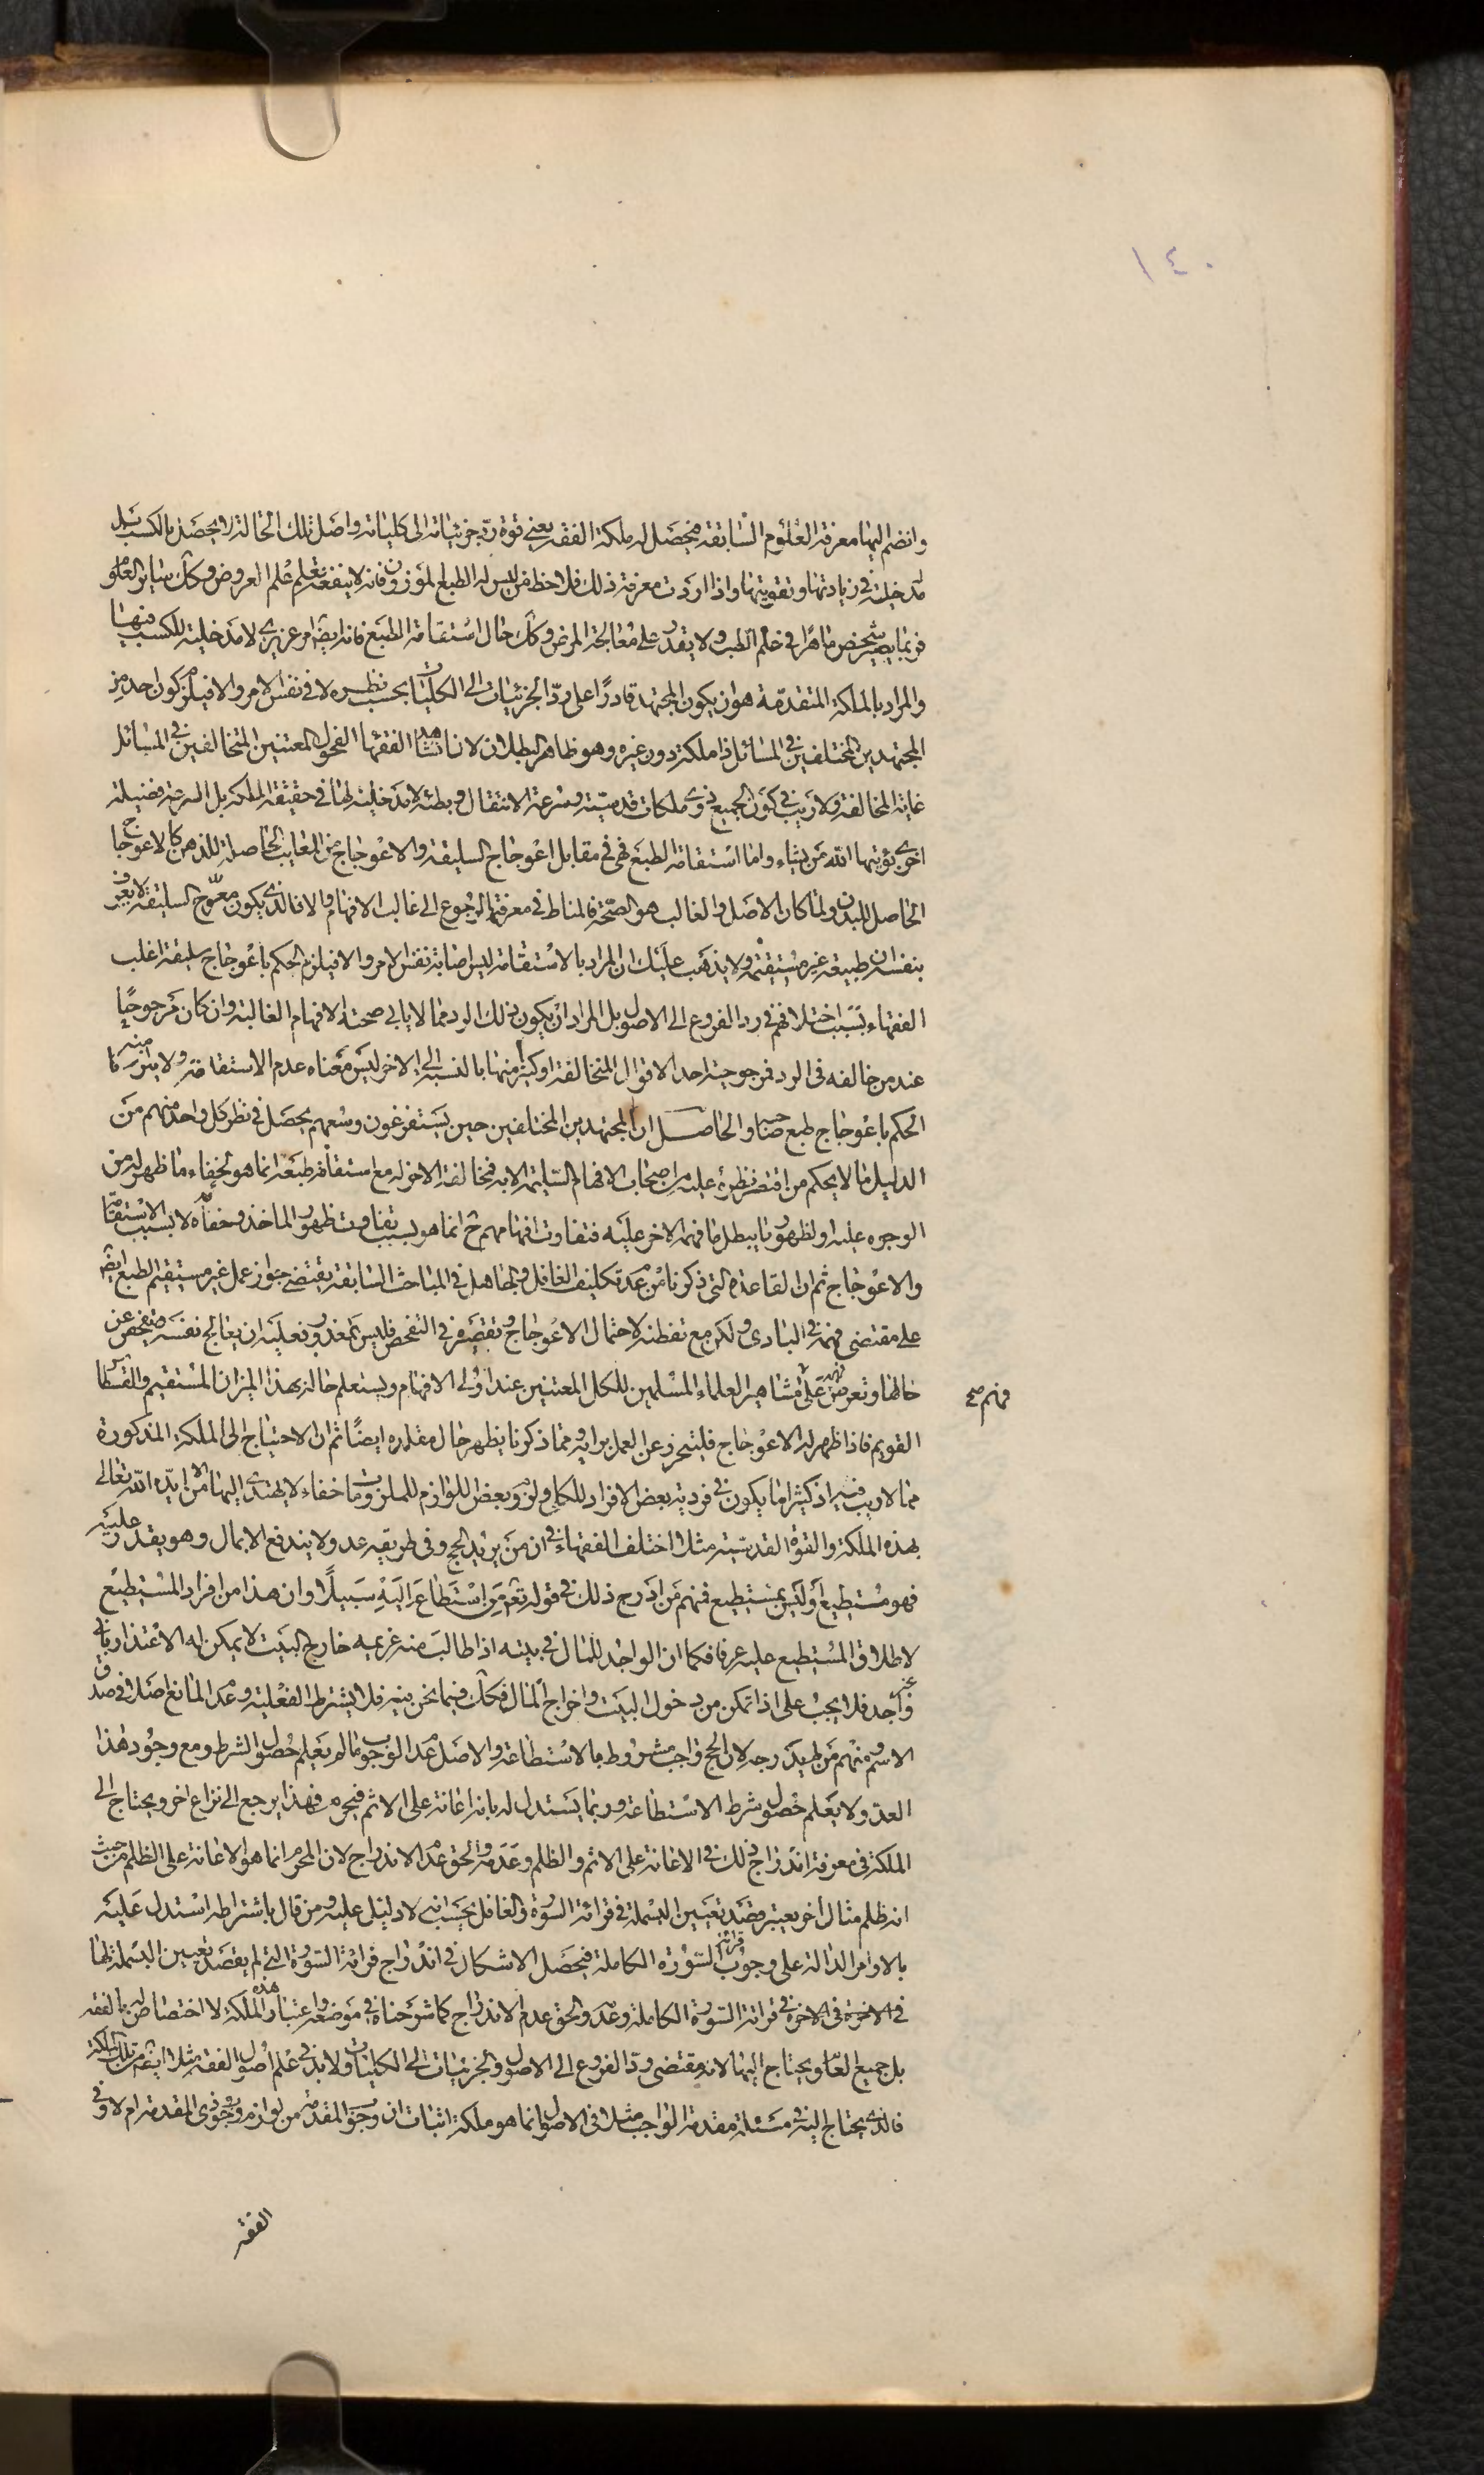 ١٤٠
وانضم اليها معرفة العلوم السابقة فيحصل له ملكة الفقه يعني قوة رد جزئياته الى كلياته واصل تلك الحالة لا يحصل بالكسب بل
له مدخلية في زيادتها وتقويتها واذا اردت معرفة ذلك فلاحظ من ليس له الطبع الموزون فانه لا ينفعه تعلم علم العروض وكك سائر العلوم
فربما يصير شخص ماهرا في علم الطب ولا يقدر على معالجة المرض وكك حال استقامة الطبع فانه ايضا امر غريزي لا مدخلية للكسب فيها
والمراد بالملكة المتقدمة هو ان يكون المجتهد قادرًا على رد الجزئيات الى الكليات بحسب نظره لا في نفس الامر والا فيلزم كون احد من
المجتهدين المختلفين في المسائل ذا ملكة دون غيره وهو ظاهر البطلان لانا نشاهد الفقهاء الفحول المعتنين المتخالفين في المسائل
غاية المخالفة ولا ريب في كون الجميع ذوي ملكات قدسية وسرعة الانتقال وبطئه لا مدخلية لها في حقيقة الملكة بل السرعة فضيلة
اخرى يؤتيها الله من يشاء واما استقامة الطبع فهي في مقابل اعوجاج السليقة والاعوجاج من المعايب الحاصلة للذهن كالاعوجاج
الحاصل للبدن ولما كان الاصل والغالب هو الصحة فالمناط في معرفتها الرجوع الى غالب الافهام والا فالذي يكون معوج السليقة لا يعرف
بنفسه ان طبيعته غير مستقيمة ولا يذهب عليك ان المراد بالاستقامة ليس اصابة نفس الامر والا فيلزم الحكم باعوجاج سليقة اغلب
الفقهاء بسبب اختلافهم في رد الفروع الى الاصول بل المراد ان يكون ذلك الرد مما لا يابى صحته الافهام الغالبة وان كان مرجوحًا
عند من خالفه في الرد فمرجوحية احد الاقوال المتخالفة او كثير منها بالنسبة الى الاخر ليس معناه عدم الاستقامة ولا يلزم منه
الحكم باعوجاج طبع صاحبه والحاصل ان المجتهدين المختلفين حين يستفرغون وسعهم يحصل في نظر كل واحد منهم من
الدليل ما لا يحكم من اقتصر نظره عليه من اصحاب الافهام السليمة الا به فمخالفة الاخر له مع استقامة طبعه انما هو لخفاء ما ظهر له من
الوجوه عليه او لظهور ما يبطل ما فهمه الاخر عليه فتفاوت افهامهم ح انما هو بسبب تفاوت ظهور الماخذ وخفائه لا بسبب الاستقامة
والاعوجاج ثم ان القاعدة التي ذكرنا من عدم تكليف الغافل والجاهل في المباحث السابقة يقتضي جواز عمل غير مستقيم الطبع ايضا
على مقتضى فهمه في البادي ولكن مع تفطنه لاحتمال الاعوجاج وتقصيره في التفحص فليس بمعذور فعليه ان يعالج نفسه ويتفحص عن
حالها وتعرض فهمه على مشاهير العلماء المسلمين للكل المعتنين عند اولى الافهام ويستعلم حاله بهذا الميزان المستقيم والقسطاس
فهم صح
القويم فاذا ظهر له الاعوجاج فليتحرز عن العمل برايه ومما ذكرنا يظهر حال مقلده ايضًا ثم ان الاحتياج الى الملكة المذكورة
مما لا ريب فيه اذ كثيرا ما يكون في فردية بعض الافراد للكلي ولزوم بعض اللوازم للملزومات خفاء لا يهتدي اليها الا من ايده الله تعالى
بهذه الملكة والقوة القدسية مثلا اختلف الفقهاء في ان من يريد الحج وفي طريقه عدو لا يندفع الا بمال وهو يقدر عليه
فهو مستطيع او ليس بمستطيع فمنهم من ادرج ذلك في قوله تع من استطاع اليه سبيلًا وان هذا من افراد المستطيع
لاطلاق المستطيع عليه عرفا فكما ان الواجد للمال في بيته اذا طالب منه غريمه خارج البيت لا يمكن له الاعتذار باني
غير واجد فلا يجب على اذا تمكن من دخول البيت واخراج المال فكك فيما نحن فيه فلا يشترط الفعلية وعدم المانع اصلا في صدق
الاسم ومنهم من لم يدرجه لان الحج واجب مشروط بالاستطاعة والاصل عدم الوجوب ما لم يعلم حصول الشرط ومع وجود هذا
العدو لا يعلم حصول شرط الاستطاعة وربما يستدل له بانه اعانة على الاثم فيحرم فهذا يرجع الى نزاع اخر ويحتاج الى
الملكة في معرفة اندراج ذلك في الاعانة على الاثم والظلم وعدمه والحق عدم الاندراج لان المحرم انما هو الاعانة على الظلم من حيث
انه ظلم مثال اخر يعتبر قصد تعيين البسملة في قرائة السورة والغافل بحسابه لا دليل عليه ومن قال باشتراطه استدل عليه
بالاوامر الدالة على وجوب قرائة السورة الكاملة فيحصل الاشكال في اندراج قرائة السورة التي لم يقصد تعيين البسملة لها
في الاخرة في الاخرة في قرائة السورة الكاملة وعدمه والحق عدم الاندراج كما شرحناه في موضعه واعتبار هذه الملكة لا اختصاص له بالفقه
بل جميع العلوم يحتاج اليها لانه مقتضى رد الفروع الى الاصول والجزئيات الى الكليات ولا بد في علم اصول الفقه مثلا ايضا من تلك الملكة
فالذي يحتاج اليه في مسئلة مقدمة الواجب مثلا في الاصول انما هو ملكة اثبات ان وجوب المقدمة من لوازم وجوب ذي المقدمة ام لا وفي
الفقه